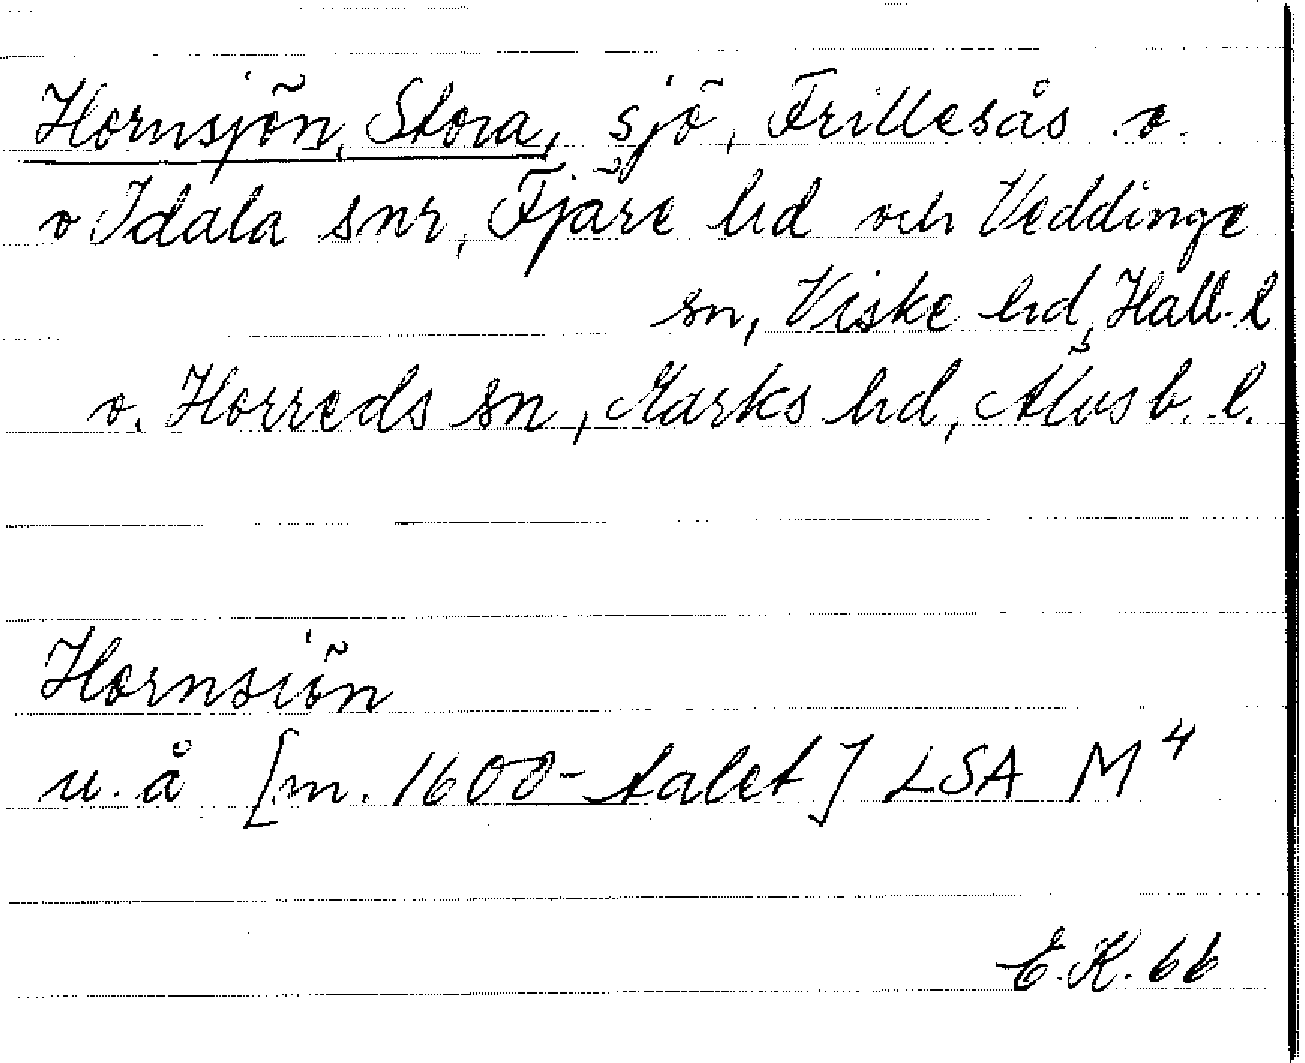 Hornsjön, Stora, sjö, Frillesås o.
o Idala snr, Fjäre hd och Veddinge
sn, Viske hd, Hall. l
o. Horreds sn, Marks hd, Älvsb. l.
Hornsiön
u. å [m. 1600-talet] LSA M4
E.K. 66